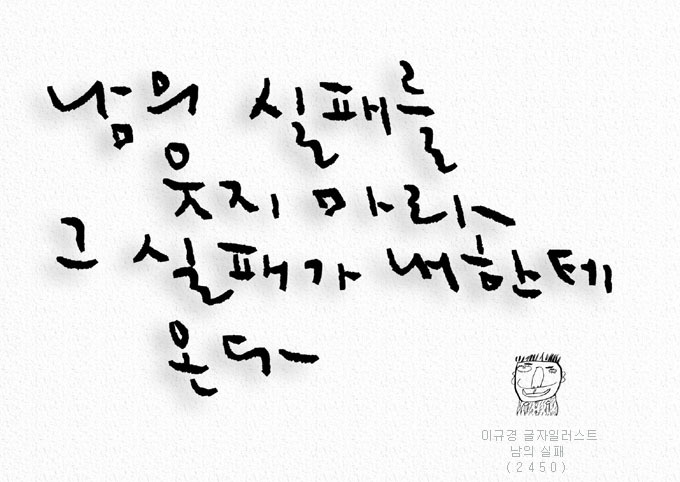 남의 실패를
웃지 마라
그 실패가 내한테
온다
이규경 글자일러스트
남의 실패
(2450)